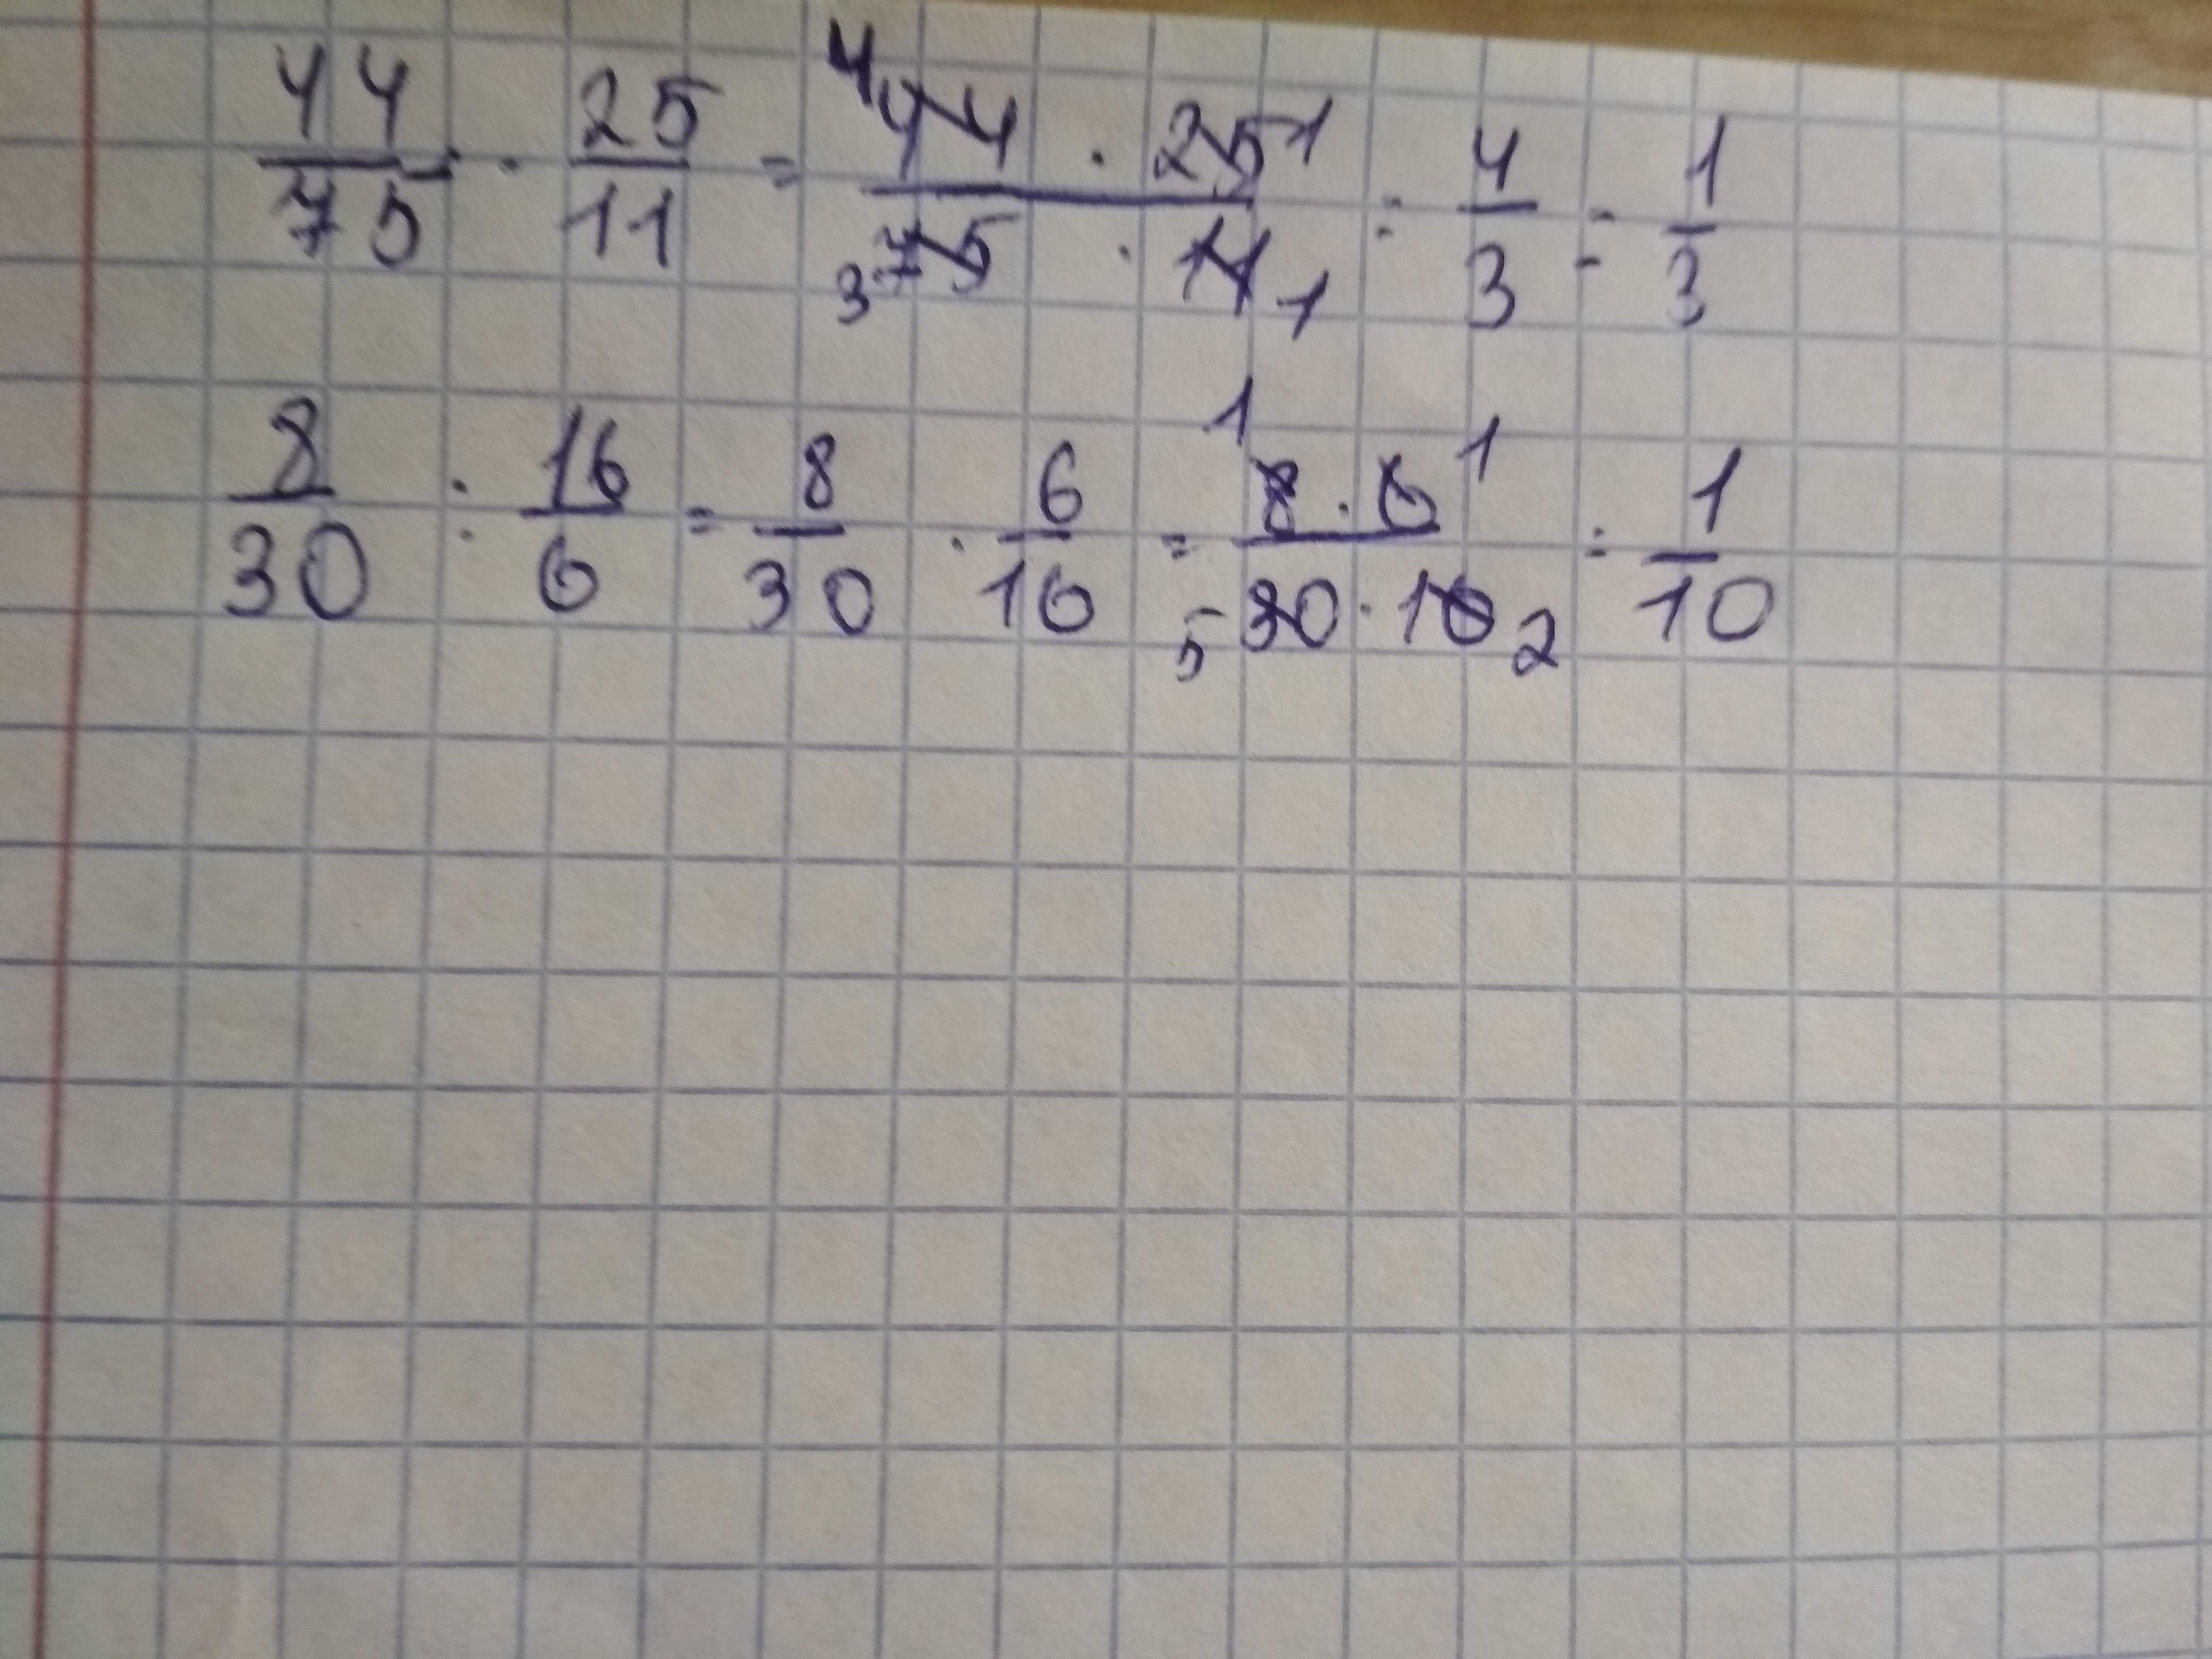 44/75 · 25/11 = 4 44 · 25 1 / 3 75 · 11 1 = 4/3 = 1/3
8/30 : 16/6 = 8/30 · 6/16 = 1 8 · 6 1 / 5 30 · 16 2 = 1/10